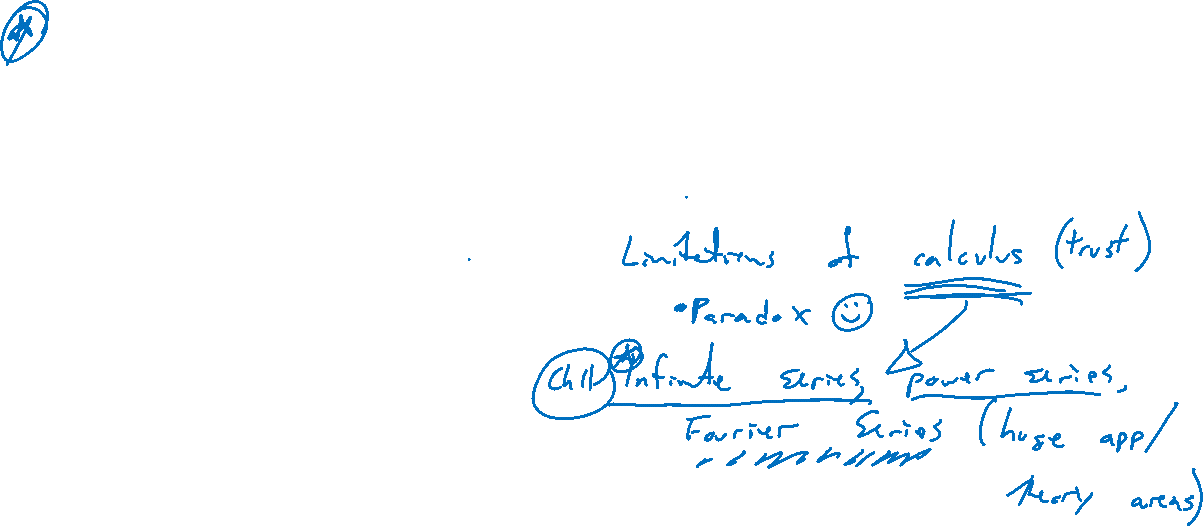 Limitations of calculus (trust)
•Paradox ☺
Ch11 Infinite series, power series,
Fourier Series (huge app/
theory areas)